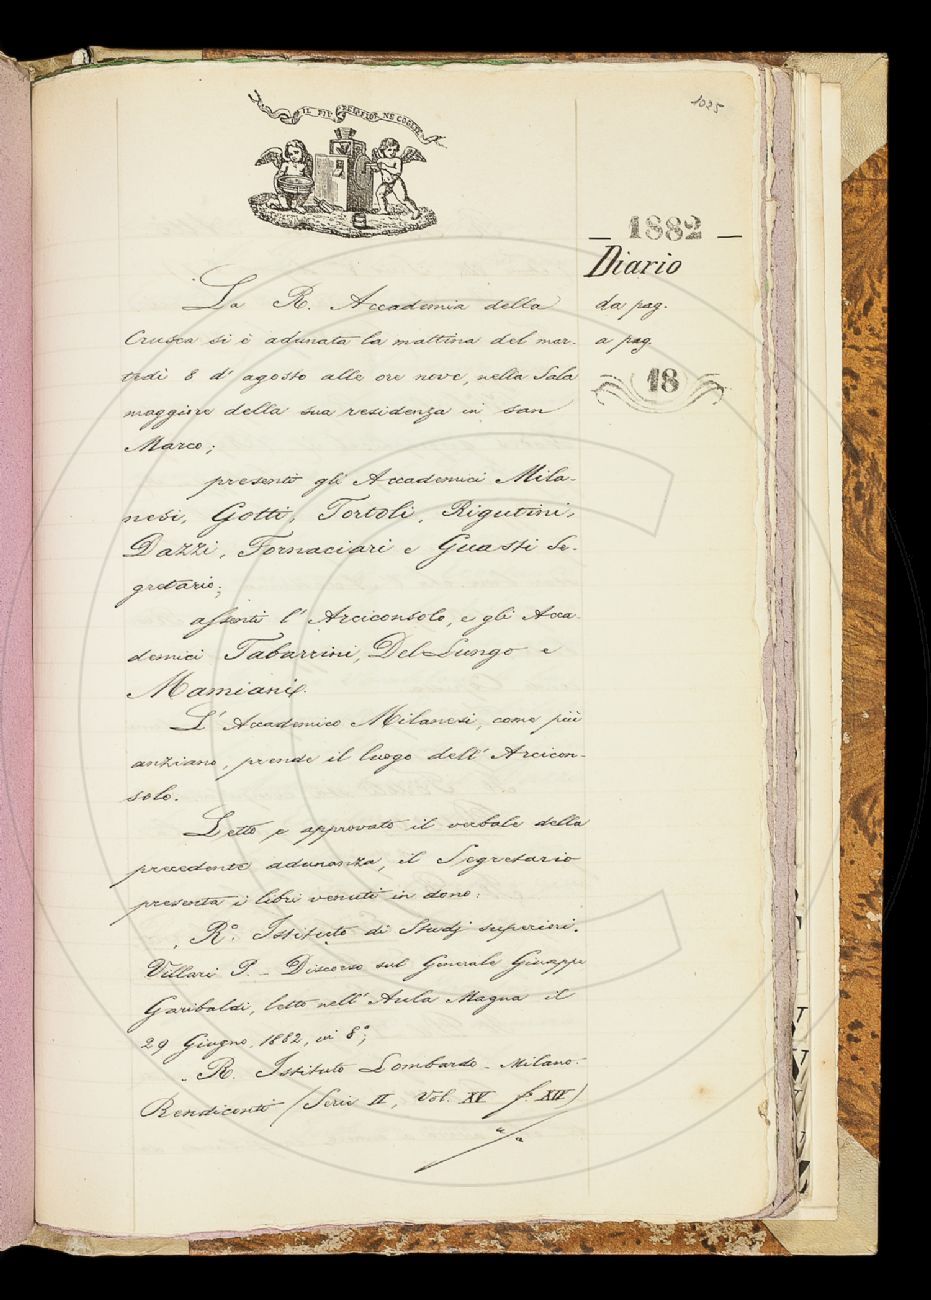 IL PIÙ BEL FIOR NE COGLIE
1025
1882
Diario
da pag.
a pag.
18
La R. Accademia della
Crusca si è adunata la mattina del mar-
tedì 8 d' agosto alle ore nove, nella Sala
maggiore della sua residenza in San
Marco;
presenti gli Accademici Mila-
nesi, Gotti, Tortoli, Rigutini,
Dazzi, Fornaciari e Guasti Se-
gretario;
assenti l' Arciconsolo, e gli Acca-
demici Tabarrini, Del Lungo e
Mamiani.
L' Accademico Milanesi, come più
anziano, prende il luogo dell' Arcicon-
solo.
Letto e approvato il verbale della
precedente adunanza, il Segretario
presenta i libri venuti in dono:
R.º Istituto di Studj superiori.
Villari P. - Discorso sul Generale Giuseppe
Garibaldi, letto nell' Aula Magna il
29 Giugno, 1882, in 8º;
R. Istituto Lombardo - Milano.
Rendiconti (Serie II, Vol. XV f. XIII)
"/"